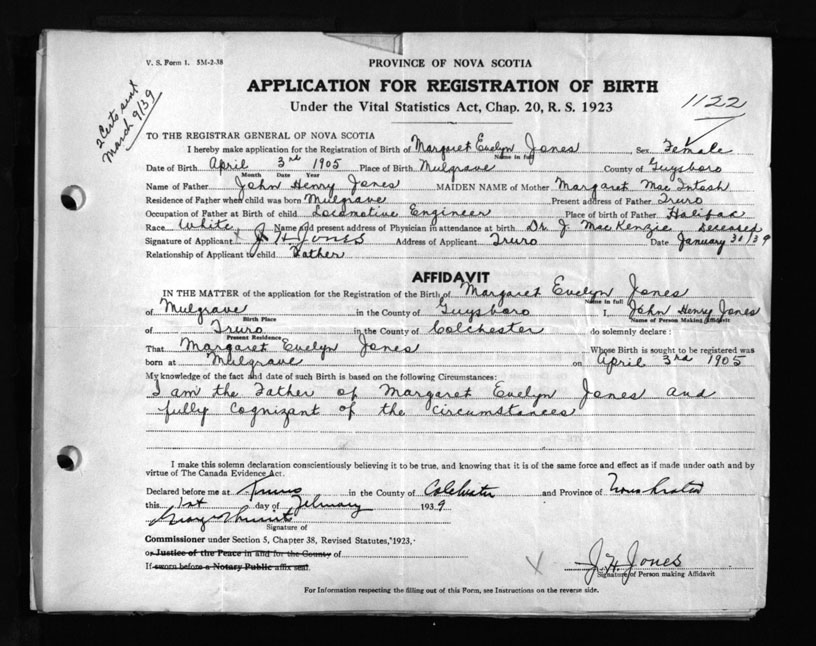 V. S. Form 1. 5M-2-38
PROVINCE OF NOVA SCOTIA
APPLICATION FOR REGISTRATION OF BIRTH
Under the Vital Statistics Act, Chap. 20, R. S. 1923
1122
2 Certs sent
March 9/39
TO THE REGISTRAR GENERAL OF NOVA SCOTIA
I hereby make application for the Registration of Birth of Margaret Evelyn Jones, Sex Female
Name in full
Date of Birth April 3rd 1905 Place of Birth Mulgrave County of Guysboro
Month Date Year
Name of Father John Henry Jones MAIDEN NAME of Mother Margaret Mac Intosh
Residence of Father when child was born Mulgrave Present address of Father Truro
Occupation of Father at Birth of child Locomotive Engineer Place of birth of Father Halifax
Race White Name and present address of Physician in attendance at birth Dr. J. MacKenzie Deceased
Signature of Applicant J. H. Jones Address of Applicant Truro Date January 30/39
Relationship of Applicant to child Father
AFFIDAVIT
IN THE MATTER of the application for the Registration of the Birth of Margaret Evelyn Jones
Name in full
of Mulgrave in the County of Guysboro I, John Henry Jones
Birth Place Name of Person Making Affidavit
of Truro in the County of Colchester do solemnly declare:
Present Residence
That Margaret Evelyn Jones Whose Birth is sought to be registered was
born at Mulgrave on April 3rd 1905
My knowledge of the fact and date of such Birth is based on the following Circumstances:
I am the Father of Margaret Evelyn Jones and
fully cognizant of the circumstances
I make this solemn declaration conscientiously believing it to be true, and knowing that it is of the same force and effect as if made under oath and by
virtue of The Canada Evidence Act.
Declared before me at Truro in the County of Colchester and Province of Nova Scotia
this 1st day of February 1939
Signature of
Commissioner under Section 5, Chapter 38, Revised Statutes, 1923,
or Justice of the Peace in and for the County of
If sworn before a Notary Public affix seal.
J. H. Jones
Signature of Person making Affidavit
For Information respecting the filling out of this Form, see Instructions on the reverse side.